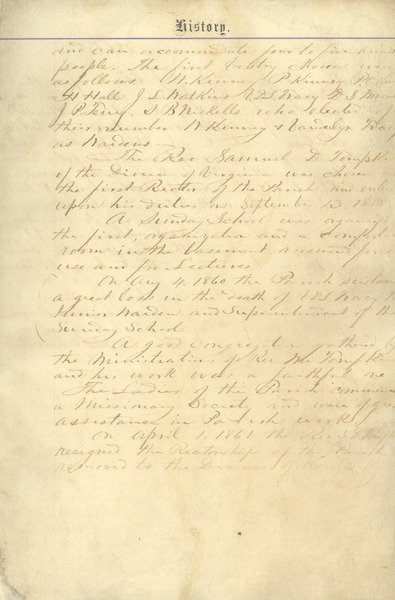 History.
and can accommodate four to five hund
people. The first Vestry chosen were
as follows W. Kinney P Kinney
Hall J L Watkins V D L Tracy D. S.
J P Terry J B Nickells who elected
their number W Kinney & Vandelyn Tracy
as Wardens
The Rev Samuel D Tompkins
of the Diocese of Virginia was chosen
the first Rector of the Parish and entered
upon his duties on September 13 1858
A Sunday School was organized
the first organization and a
room in the basement reserved for
use and for Lectures
On Aug 4, 1860 the Parish sustained
a great loss in the death of V D L Tracy
Junior Warden and Superintendent of the
Sunday School
A good congregation gathered by
the Ministrations of Rev Mr Tompkins
and his work was a faithful one
The Ladies of the Parish commenced
a Missionary Society and were of great
assistance in Parish work
On April 1, 1861 the Rev S D Tomp
resigned the Rectorship of the Parish
removed to the Diocese of